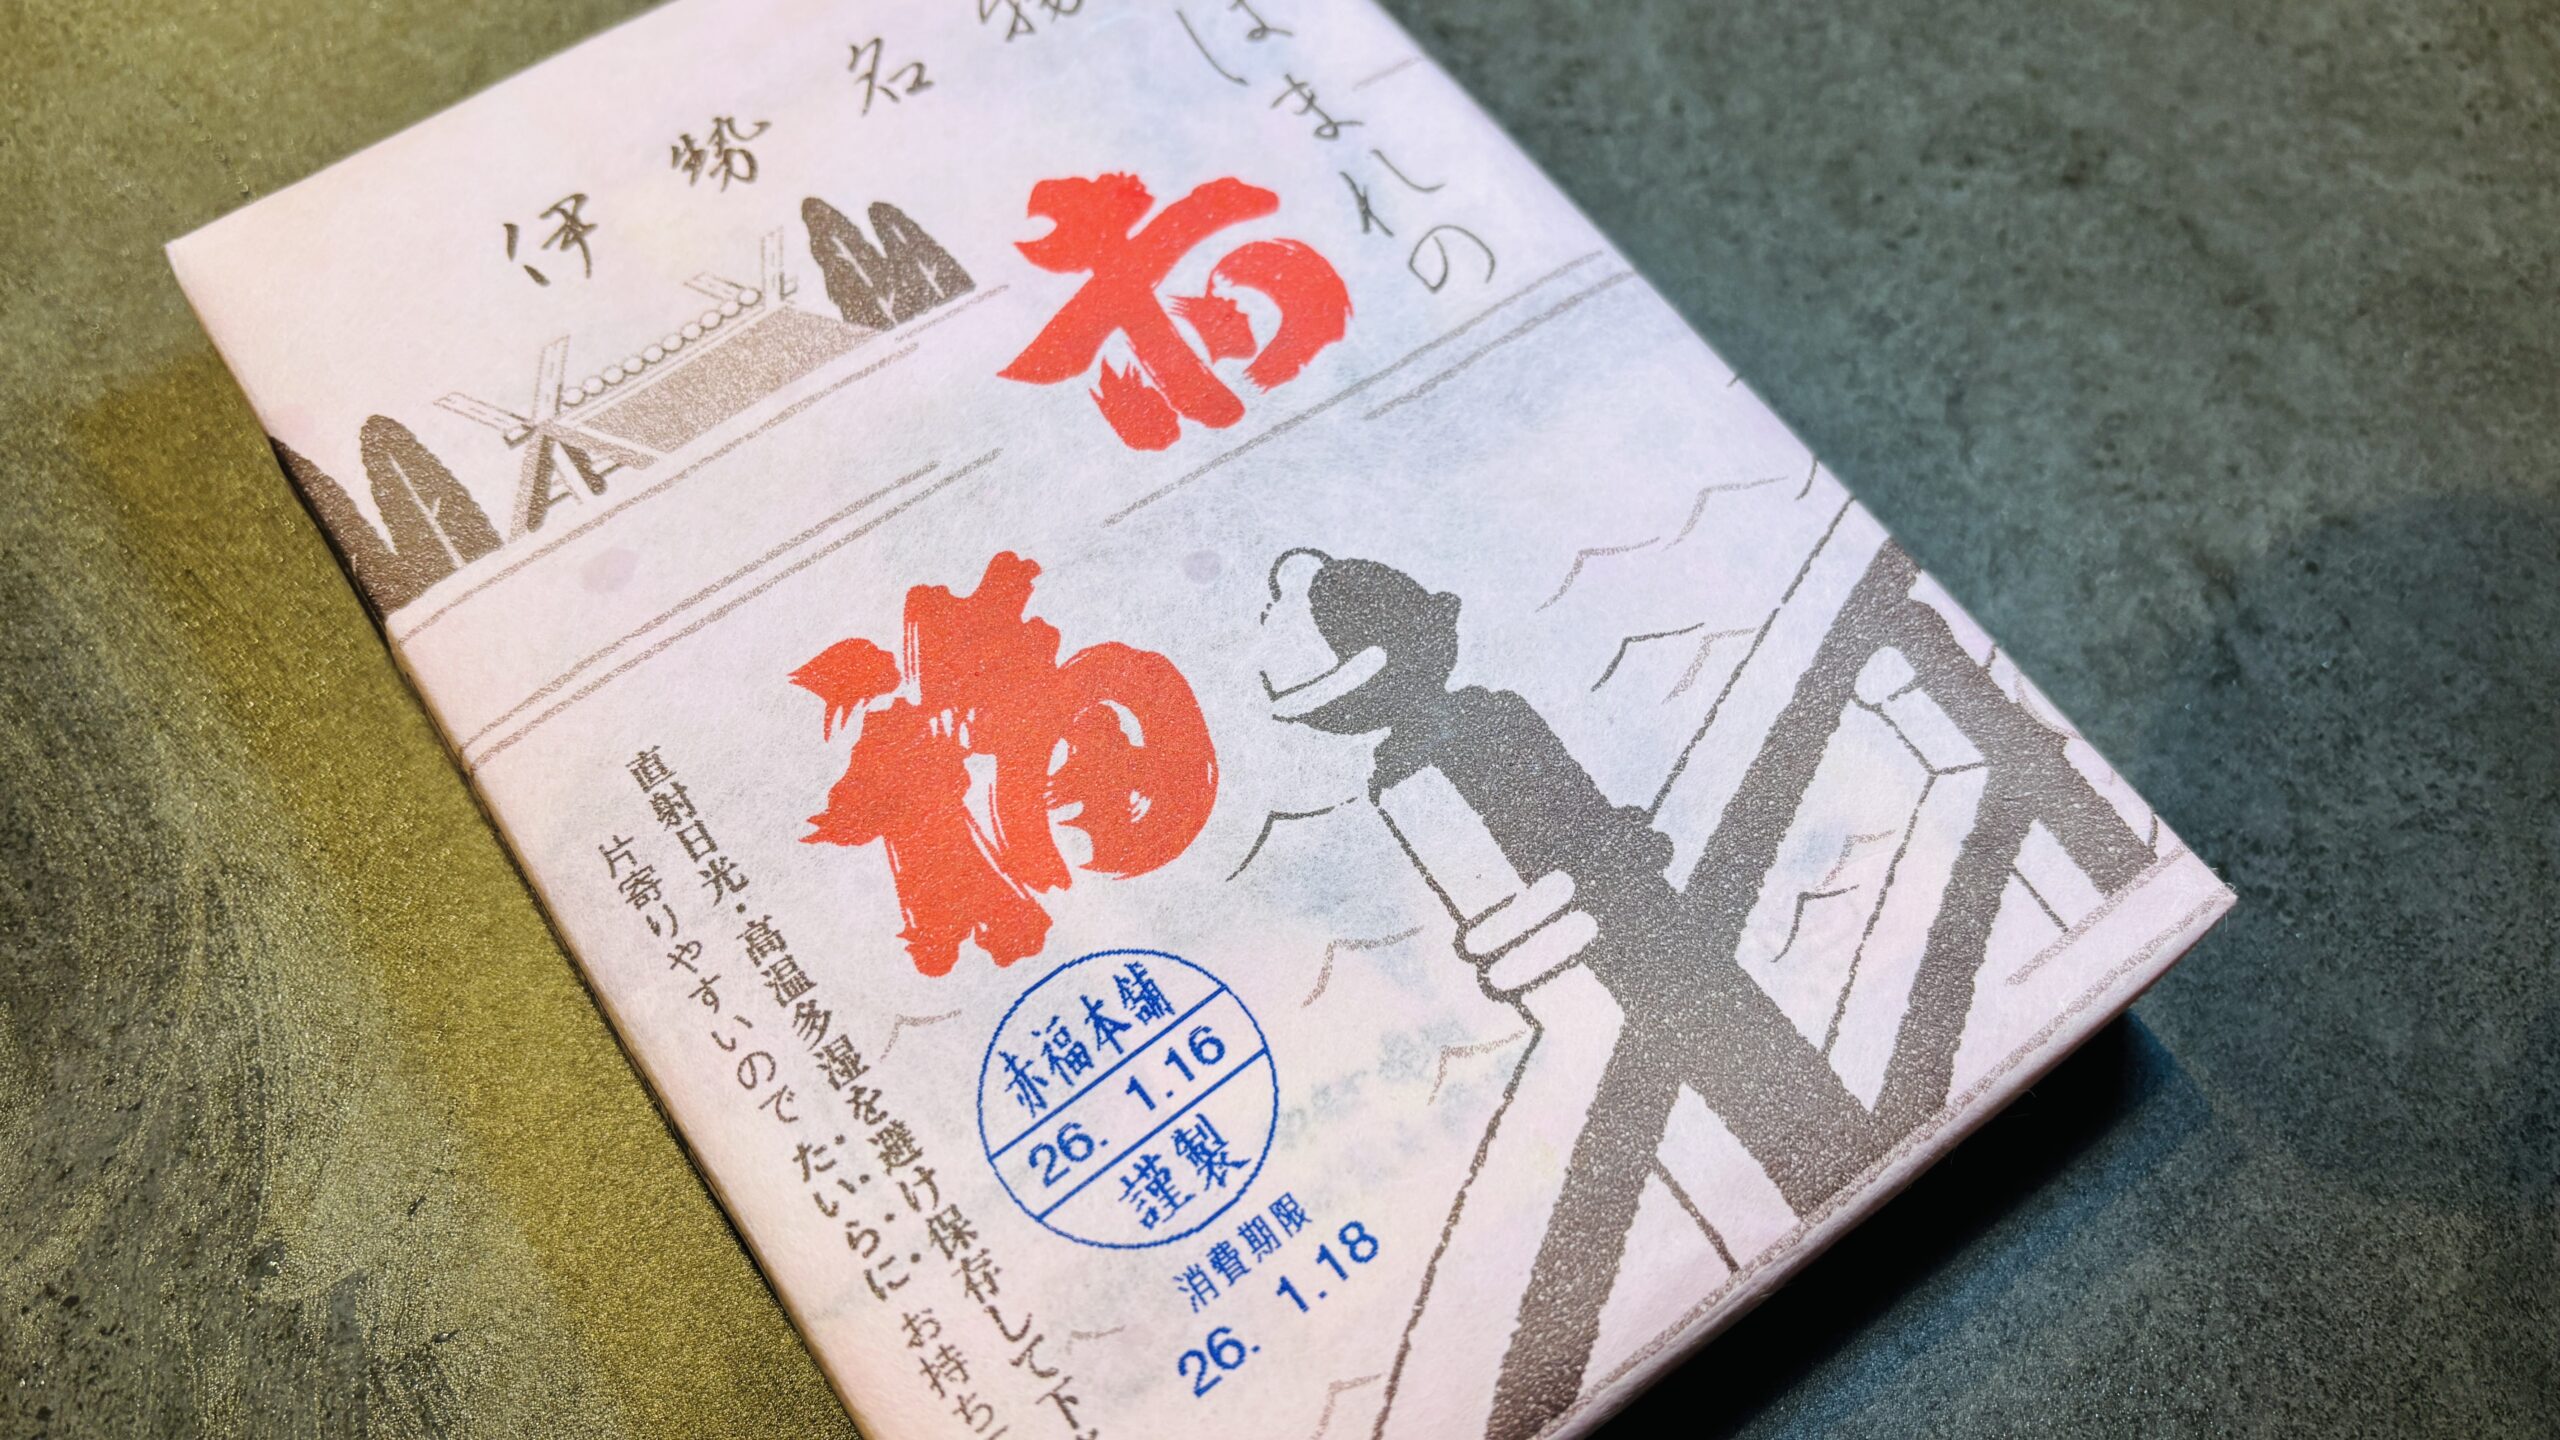 伊勢名物
ほまれの
赤福
赤福本舗
26. 1.16
謹製
消費期限
26. 1.18
直射日光・高温多湿を避け保存して下
片寄りやすいので たいらに お持ち